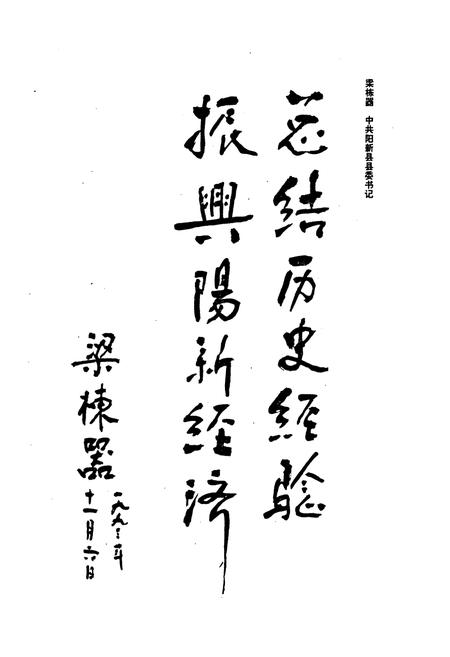 梁栋器 中共阳新县县委书记
总结历史经验
振興陽新経济
梁栋器
一九九二年
十一月六日